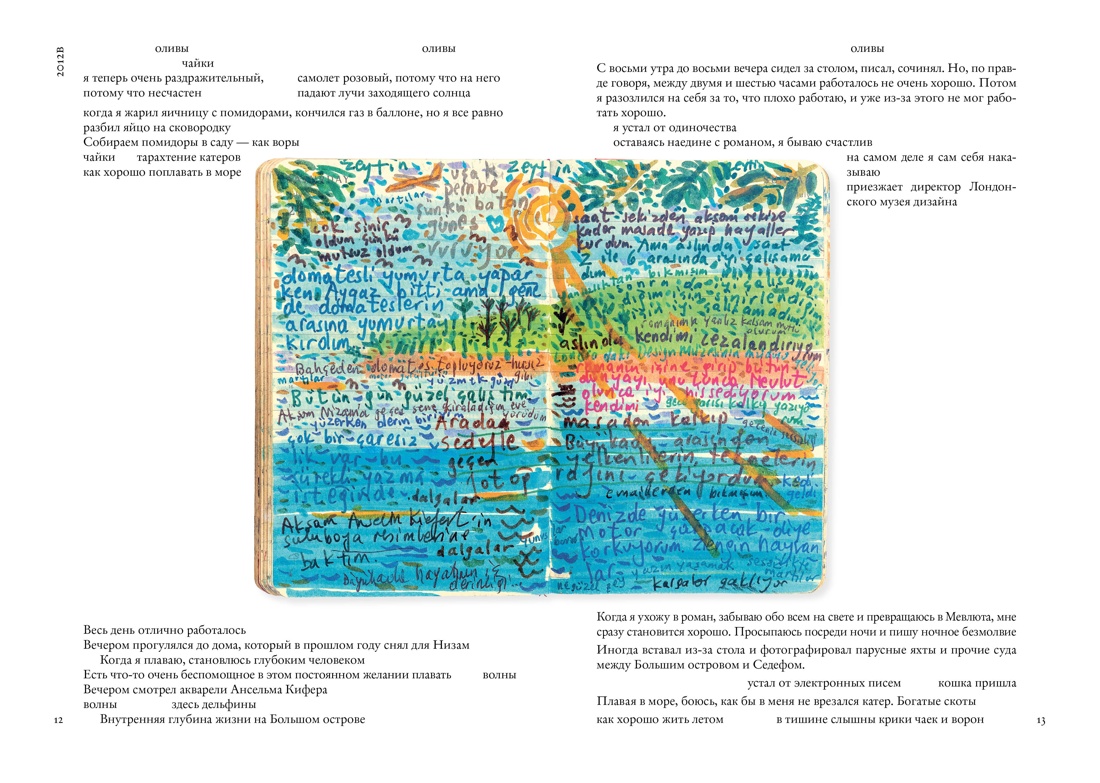 2012В
оливы оливы
чайки
я теперь очень раздражительный,
потому что несчастен
самолет розовый, потому что на него
падают лучи заходящего солнца
когда я жарил яичницу с помидорами, кончился газ в баллоне, но я все равно
разбил яйцо на сковородку
Собираем помидоры в саду — как воры
чайки тарахтение катеров
как хорошо поплавать в море
zeytin zeytin
uçak
pembe
martılar
çünkü batan
güneş
vuruyor
çok sinirli
oldum çünkü
mutsuz oldum
domatesli yumurta yapar
ken Aygaz bitti ama gene
de domateslerin
arasına yumurtayı
kırdım
Bahçeden domates topluyoruz hırsız
gibi
martılar
yüzmek güzel
Bütün gün güzel çalıştım
Akşam Nizama geçen sene kiraladığım eve
yürüdüm
yüzerken derin birisi
Aradan
çok bir çaresiz
sedefle
lik var bu
geçen
sürekli yazma
fotop
isteğinde
dalgalar
Akşam Anselm Kiefer'in
suluboya resimlerine
dalgalar
baktım
Büyükada hayatının iç
derinliği
Весь день отлично работалось
Вечером прогулялся до дома, который в прошлом году снял для Низам
Когда я плаваю, становлюсь глубоким человеком
Есть что-то очень беспомощное в этом постоянном желании плавать волны
Вечером смотрел акварели Ансельма Кифера
волны здесь дельфины
Внутренняя глубина жизни на Большом острове
12
оливы
С восьми утра до восьми вечера сидел за столом, писал, сочинял. Но, по прав-
де говоря, между двумя и шестью часами работалось не очень хорошо. Потом
я разозлился на себя за то, что плохо работаю, и уже из-за этого не мог рабо-
тать хорошо.
я устал от одиночества
оставаясь наедине с романом, я бываю счастлив
на самом деле я сам себя нака-
зываю
приезжает директор Лондон-
ского музея дизайна
saat sekizden akşam sekize
kadar masada yazıp hayaller
kurdum. Ama aslında saat
2 ile 6 arasında iyi çalışama
dım
bıkmışım
aslında kendimi cezalandırıyo
rum
Londradaki Design Müzesinin müdürü
Romanın içine girip bütün
dünyayı unutunca, Mevlut
olunca iyi hissediyorum
kendimi
gece yarısı kalkıp yazıyo
rum
masadan kalkıp
Büyükada arasından
yelkenlilerin teknelerin
rafını çekiyordum
kedi
geldi
emaillerden bıkmışım
Denizde yüzerken bir
motor çarpacak diye
korkuyorum. Zengin hayvan
lar
yazın yaşamak
ne güzel şey
martılar
kargalar gaklıyor
Когда я ухожу в роман, забываю обо всем на свете и превращаюсь в Мевлюта, мне
сразу становится хорошо. Просыпаюсь посреди ночи и пишу ночное безмолвие
Иногда вставал из-за стола и фотографировал парусные яхты и прочие суда
между Большим островом и Седефом.
устал от электронных писем кошка пришла
Плавая в море, боюсь, как бы в меня не врезался катер. Богатые скоты
как хорошо жить летом в тишине слышны крики чаек и ворон
13